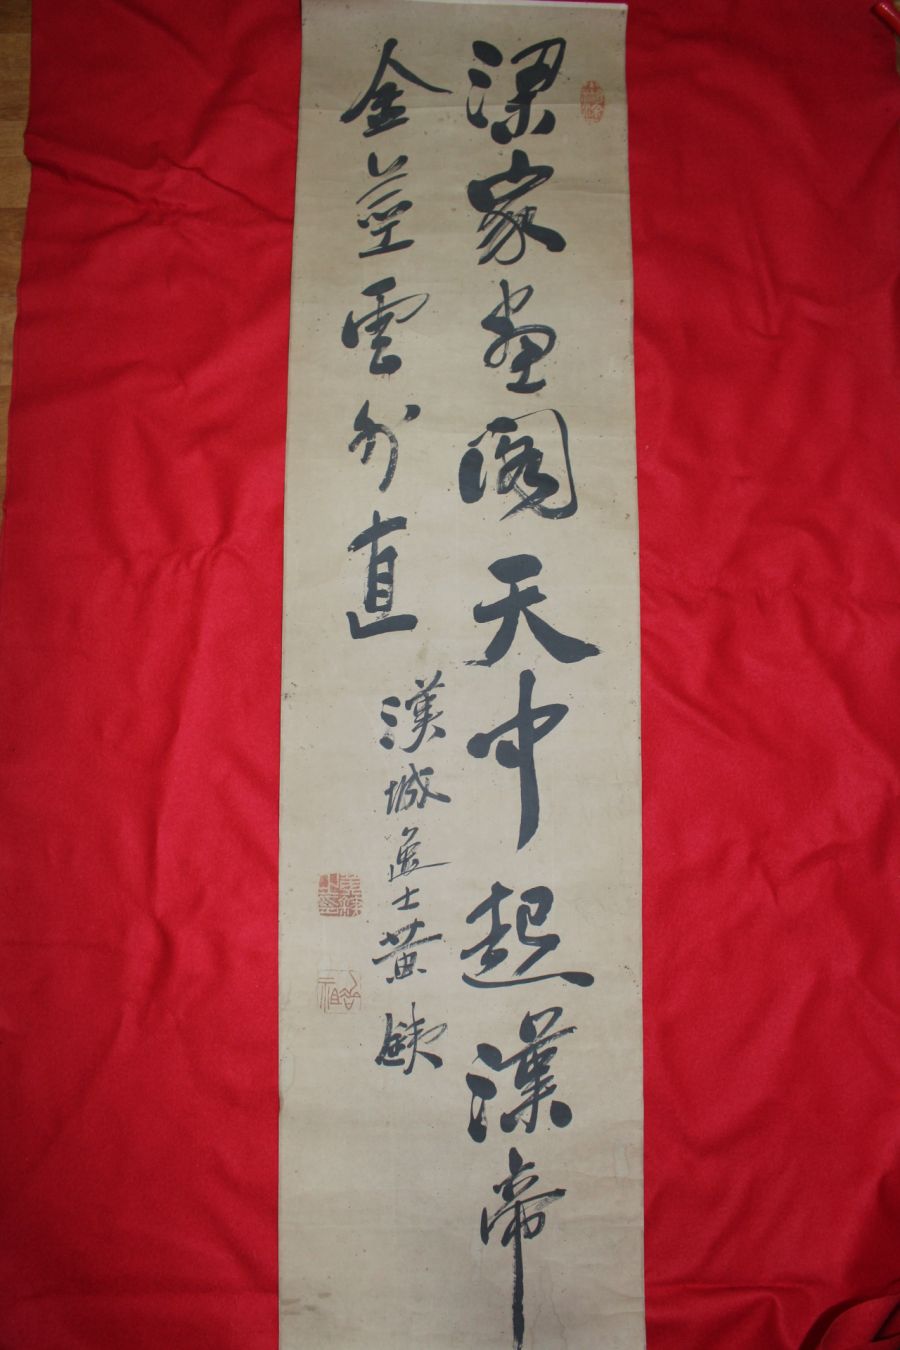 梁家畫閣天中起漢帝
金莖雲外直
漢城進士黃鐵